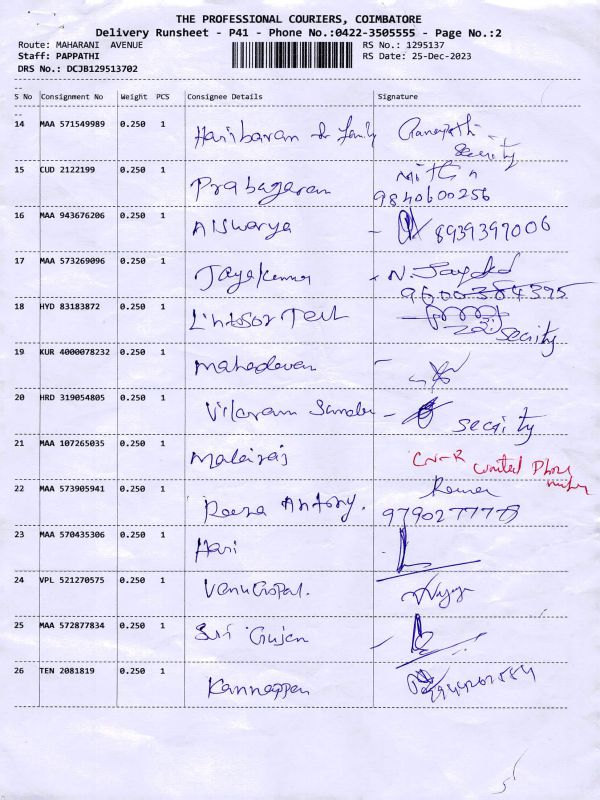 THE PROFESSIONAL COURIERS, COIMBATORE
Delivery Runsheet - P41 - Phone No.:0422-3505555 - Page No.:2
Route: MAHARANI AVENUE RS No.: 1295137
Staff: PAPPATHI RS Date: 25-Dec-2023
DRS No.: DCJB129513702
S No Consignment No Weight PCS Consignee Details Signature
14 MAA 571549989 0.250 1 Hariharan & family
Secrity
15 CUD 2122199 0.250 1 Prabagaran Mithn
9840600256
16 MAA 943676206 0.250 1 Aiswarya 8939397006
17 MAA 573269096 0.250 1 Jayakumar
9600384395
18 HYD 83183872 0.250 1
Secrity
19 KUR 4000078232 0.250 1 Mahadevan
20 HRD 319054805 0.250 1 Vikram secrity
21 MAA 107265035 0.250 1 Malairaj wanted Phone
22 MAA 573905941 0.250 1 Reena Antony.
23 MAA 570435306 0.250 1 Hari
24 VPL 521270575 0.250 1 VenuGopal.
25 MAA 572877834 0.250 1 Sri
26 TEN 2081819 0.250 1 Kannappan